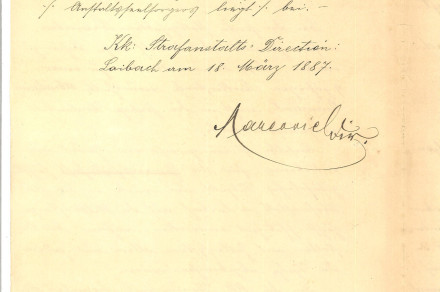 ·/· Anstaltsseelsorgers liegt ·/· bei. –
Kk: Strafanstalts Direction:
Laibach am 18. März 1887.
Marcovich Dir.